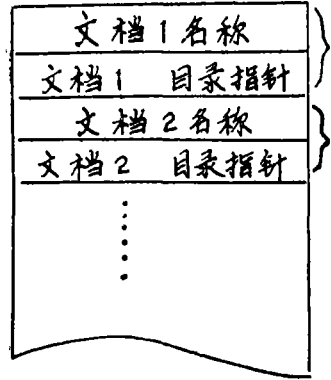 文档1名称
文档1 目录指针
文档2名称
文档2 目录指针